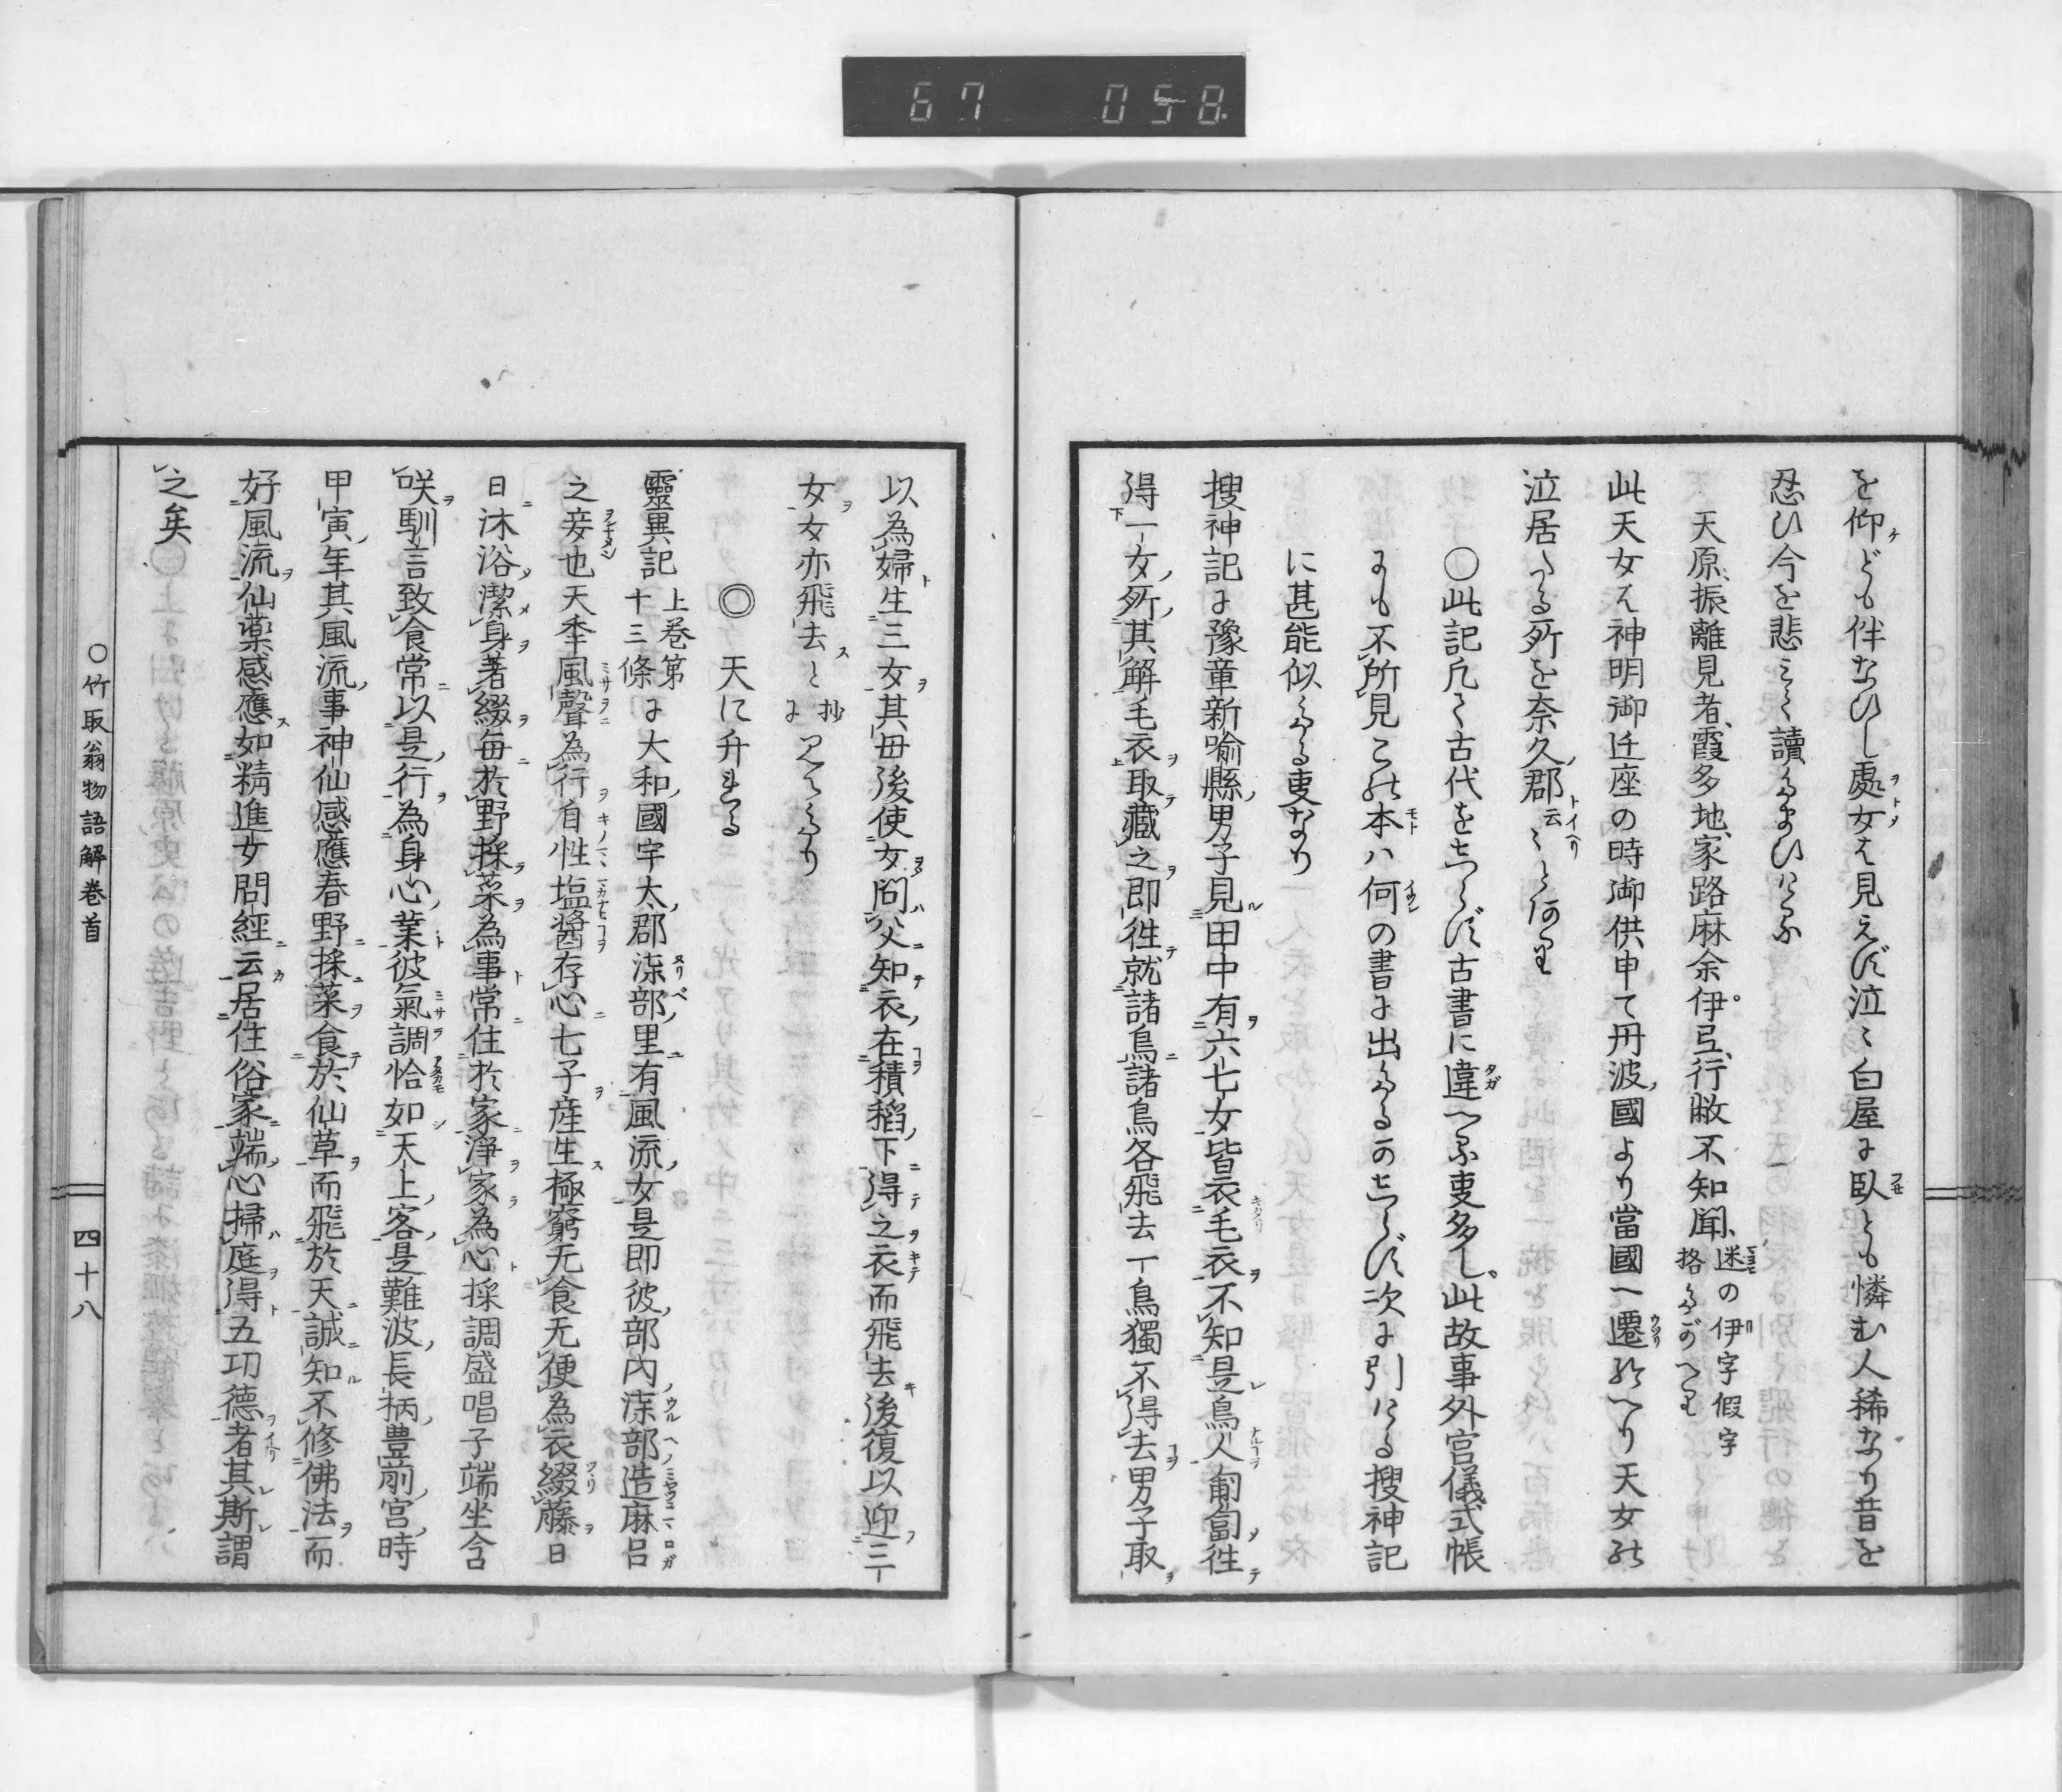 67 058
を仰ども伴なひし處女は見えず泣〻白屋に臥とも憐む人稀なり昔を
忍ひ今を悲みて讀たまひける
天原振離見者霞多地家路麻余伊弖行敝不知聞迷の伊字假字格たがへり
此天女は神明御迁座の時御供申て丹波國より當國へ遷給へり天女の
泣居たる所を奈久郡云〻とあり
〇此記凡て古代をしらず古書に違へる叓多し此故事外宮儀式帳
にも不所見この本ハ何の書に出たるかしらず次に引ける搜神記
に甚能似たる叓なり
搜神記に豫章新喻縣男子見田中有六七女皆衣毛衣不知是鳥人匍匐徃
得一女所其解毛衣取藏之即徃就諸鳥諸鳥各飛去一鳥獨不得去男子取
以為婦生三女其母後使女問父知衣在積稻下得之衣而飛去後復以迎三
女女亦飛去と抄に見えたり
◎天に升れる
靈異記上巻第十三條に大和國宇太郡漆部里有風流女是即彼部內漆部造麻呂
之妾也天秊風聲為行自性塩醤存心七子産生極窮无食无便為衣綴藤日
日沐浴潔身著綴每於野採菜為事常住於家淨家為心採調盛唱子端坐含
咲馴言致食常以是行為身心業彼氣調恰如天上客是難波長柄豊前宮時
甲寅年其風流事神仙感應春野採菜食於仙草而飛於天誠知不修佛法而
好風流仙藥感應如精進女問經云居住俗家端心掃庭得五功德者其斯謂
之矣
〇竹取翁物語解卷首
四十八